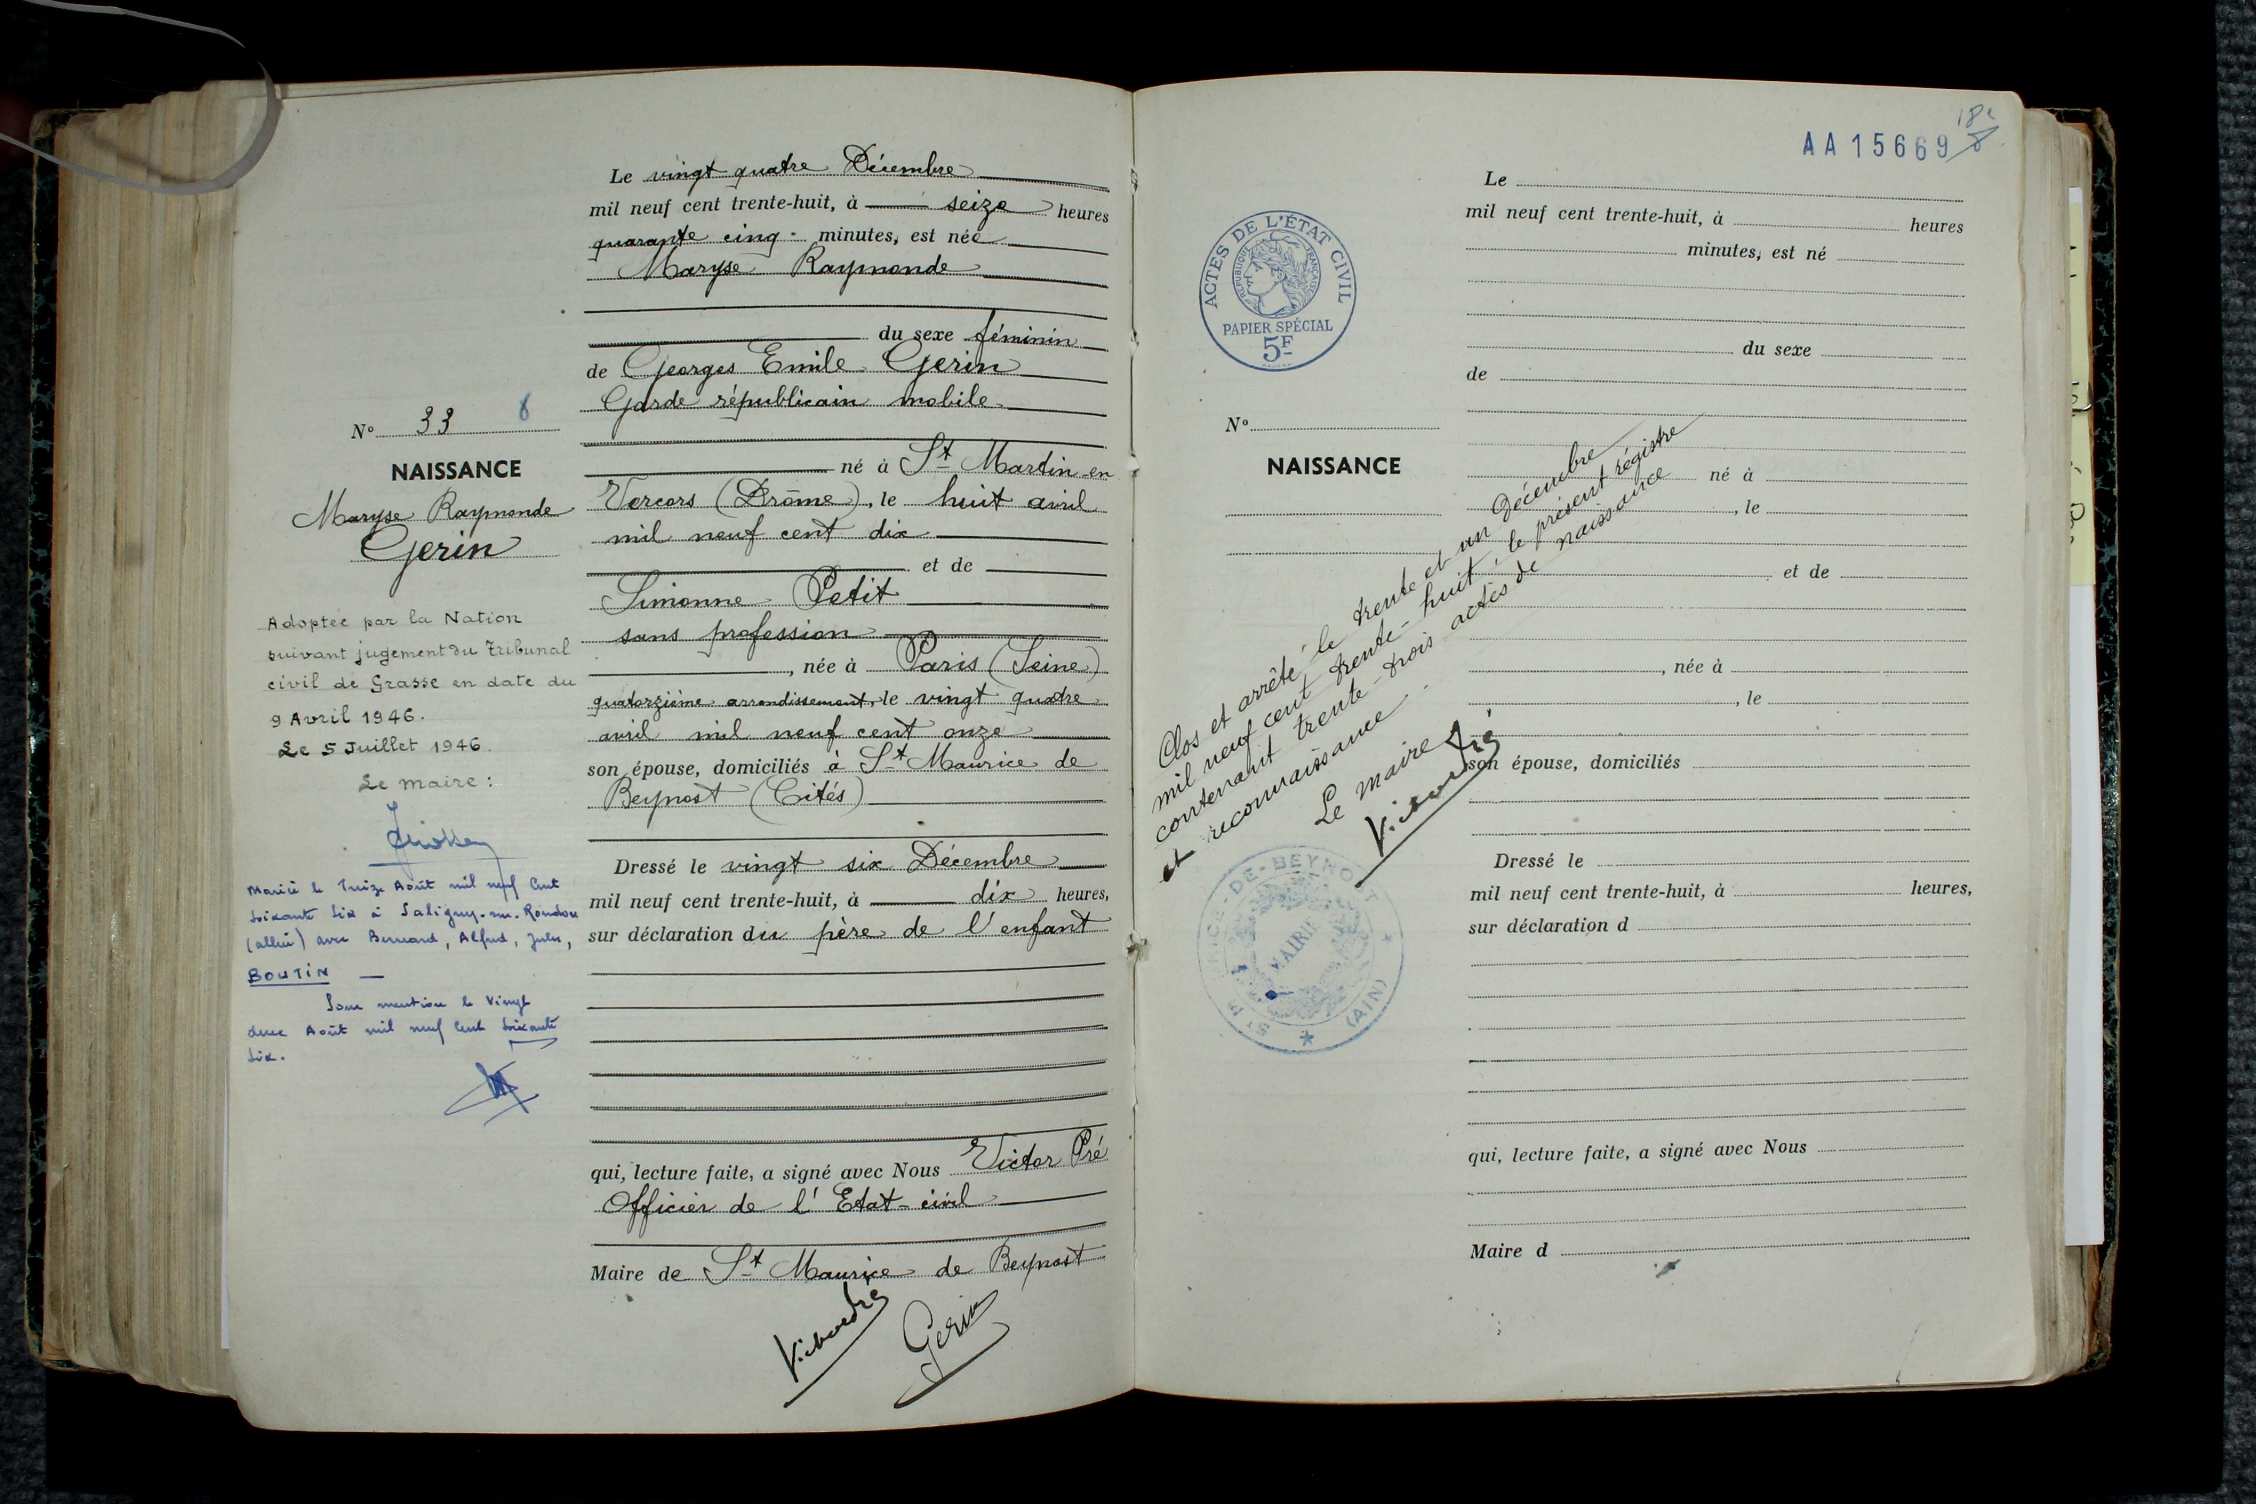 Le vingt quatre Décembre
mil neuf cent trente-huit, à seize heures
quarante cinq minutes, est née
Maryse Raymonde
du sexe féminin
de Georges Emile Gerin
Garde républicain mobile
né à St Martin en
Vercors (Drôme), le huit avril
mil neuf cent dix
et de
Simonne Petit
sans profession
, née à Paris (Seine)
quatorzième arrondissement, le vingt quatre
avril mil neuf cent onze
son épouse, domiciliés à St Maurice de
Beynost (Cités)
Dressé le vingt six Décembre
mil neuf cent trente-huit, à dix heures,
sur déclaration du père de l'enfant
qui, lecture faite, a signé avec Nous Victor Pré
Officier de l'Etat-civil
Maire de St Maurice de Beynost
Victor Pré
Gerin
No 33 8
NAISSANCE
Maryse Raymonde
Gerin
Adoptée par la Nation
suivant jugement du Tribunal
civil de Grasse en date du
9 Avril 1946.
Le 5 Juillet 1946.
Le Maire :
Marié le Treize Août mil neuf Cent
Soixante Six à Saligny-sur-Roudon
(Allier) avec Bernard, Alfred, Jules,
BOUTIN
mention le Vingt
deux Août mil neuf Cent Soixante
Six.
AA 15669
ACTES DE L'ÉTAT CIVIL
RÉPUBLIQUE FRANÇAISE
PAPIER SPÉCIAL
5F
No
NAISSANCE
Le
mil neuf cent trente-huit, à heures
minutes, est né
du sexe
de
né à
, le
et de
, née à
, le
son épouse, domiciliés
Dressé le
mil neuf cent trente-huit, à heures,
sur déclaration d
qui, lecture faite, a signé avec Nous
Maire d
Clos et arrêté le trente et un Décembre
mil neuf cent trente-huit, le présent régistre
contenant trente-trois actes de naissance
et reconnaissance.
Le Maire
Victor Pré
ST MAURICE-DE-BEYNOST
MAIRIE
(AIN)